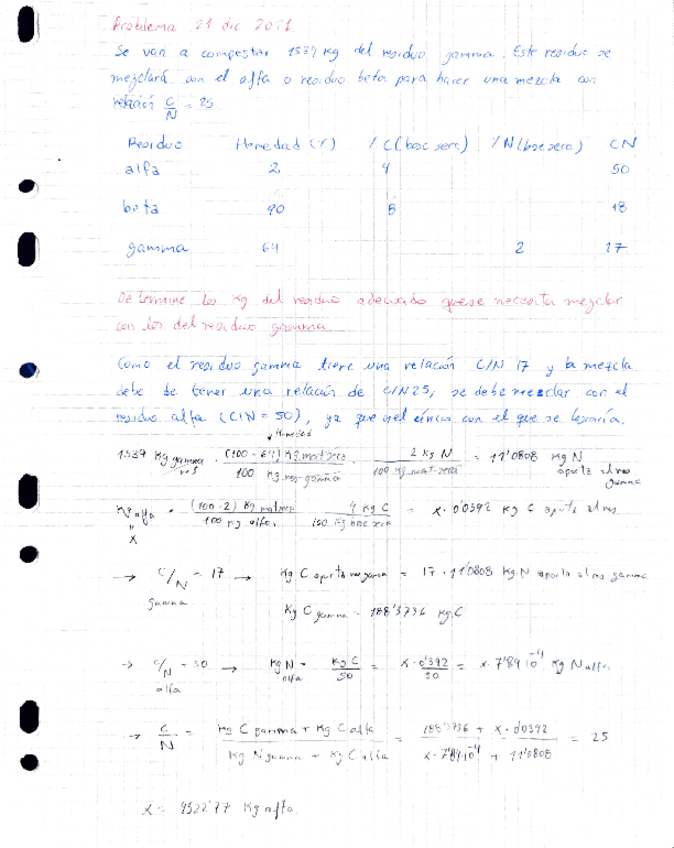 Problema 21 dic 2021.
Se van a compostar 1539 kg del residuo gamma. Este residuo se
mezclará con el alfa o residuo beta para hacer una mezcla con
relación C/N = 25
Residuo Humedad (%) % C (base seca) % N (base seca) CN
alfa 2 4 50
beta 90 8 18
gamma 64 2 17
Determine los kg del residuo adecuado que se necesita mezclar
con los del residuo gamma
Como el residuo gamma tiene una relación C/N 17 y la mezcla
debe de tener una relación de C/N 25, se debe mezclar con el
residuo alfa (C/N = 50), ya que es el único con el que se lograría.
Humedad
1539 kg gamma res · (100 - 64) kg mat seca / 100 kg res gamma · 2 kg N / 100 kg mat seca = 11'0808 kg N aporta el res gamma
kg alfa · (100 - 2) kg mat seca / 100 kg alfa · 4 kg C / 100 kg base seca = x · 0'0392 kg C aporta el res
" x
→ C/N gamma = 17 → kg C aporta res gamma = 17 · 11'0808 kg N aporta el res gamma
kg C gamma = 188'3736 kg C
→ C/N alfa = 50 → kg N alfa = kg C / 50 = x · 0'392 / 50 = x · 7'84 10⁻⁴ kg N alfa
→ C/N = kg C gamma + kg C alfa / kg N gamma + kg C alfa = 188'3736 + x · 0'0392 / x · 7'84·10⁻⁴ + 11'0808 = 25
x = 4522'77 kg alfa.